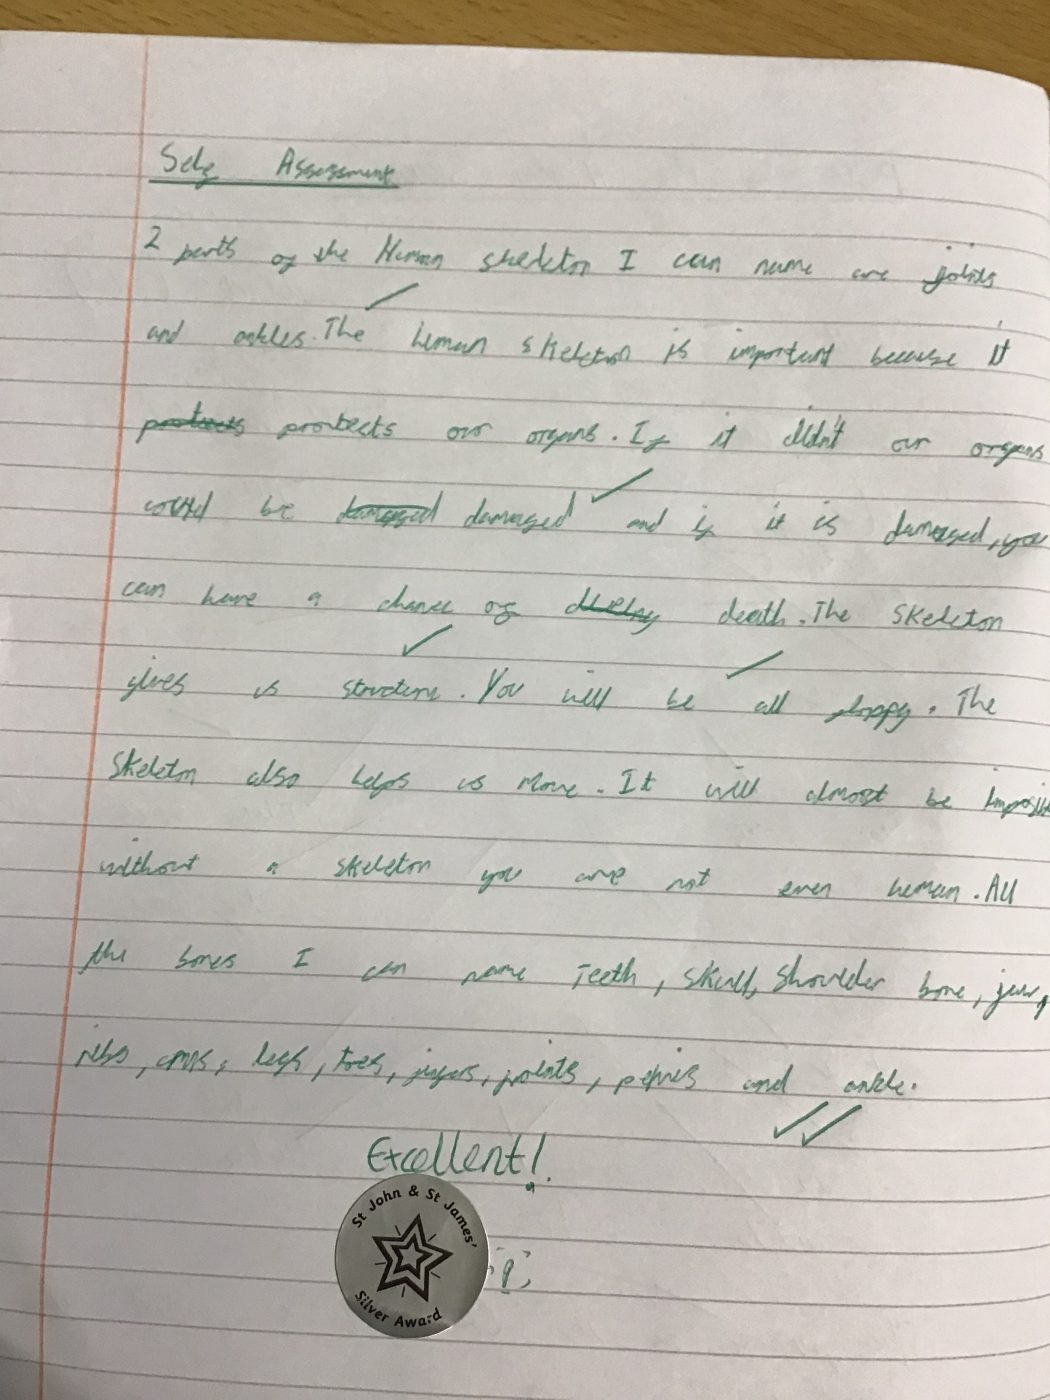 Self Assessment
2 parts of the Human skeleton I can name are joints
and ankles. The human skeleton is important because it
protects protects our organs. If it didn't our organs
could be damaged damaged and if it is damaged, you
can have a chance of death. The skeleton
gives us structure. You will be all floppy. The
skeleton also helps us move. It will almost be
without a skeleton you are not even human. All
the bones I can name Teeth, skull, shoulder bone, jaw,
ribs, arms, legs, toes, fingers, joints, and ankle.
Excellent!
St John & St James'
Silver Award